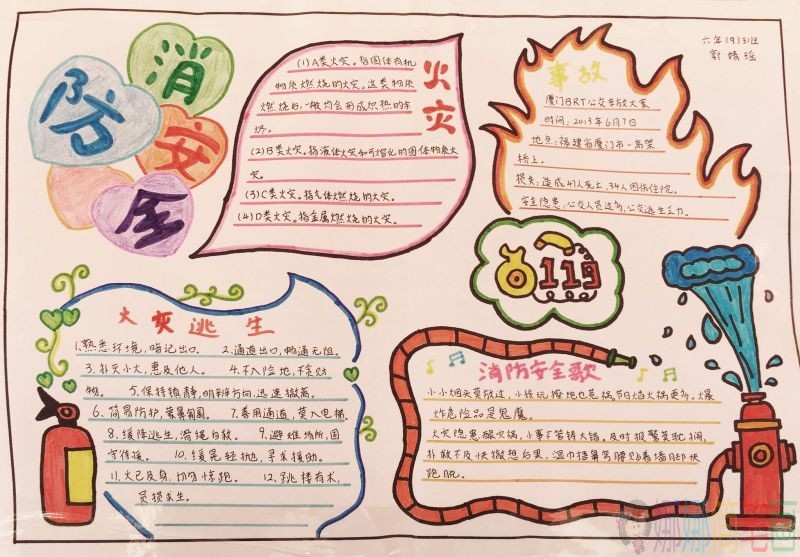 消
防
安
全
(1)A类火灾。指固体有机
物质燃烧的火灾。这类物质
燃烧后,一般均会形成炽热的余
烬。
(2)B类火灾。指液体火灾和可熔化的固体物质火
灾。
(3)C类火灾。指气体燃烧的火灾。
(4)D类火灾。指金属燃烧的火灾。
火灾
六年(9)班
郭婧瑶
事故
厦门BRT公交车放火案
时间:2013年6月7日
地点:福建省厦门市一高架
桥上。
损失:造成47人死亡,34人因伤住院。
安全隐患:公交人员过多,公交逃生乏力。
119
火灾逃生
1.熟悉环境,暗记出口. 2.通道出口,畅通无阻.
3.扑灭小火,惠及他人。 4.不入险地,不贪财
物。 5.保持镇静,明辨方向,迅速撤离。
6.简易防护,蒙鼻匍匐. 7.善用通道,莫入电梯.
8.缓降逃生,滑绳自救. 9.避难场所,固
守待援。 10.缓晃轻抛,寻求援助。
11.火已及身,切勿惊跑. 12.跳楼有术,
员损求生。
消防安全歌
小小烟头莫放过,小孩玩撩地也惹祸,节日焰火祸更多,爆
炸危险品是冤魔。
火灾隐患酿灾祸,小事不管铸大错,及时报警莫耽搁,
扑救不及快撤想后果,湿巾捂鼻弯腰贴着墙脚快
跑脱。